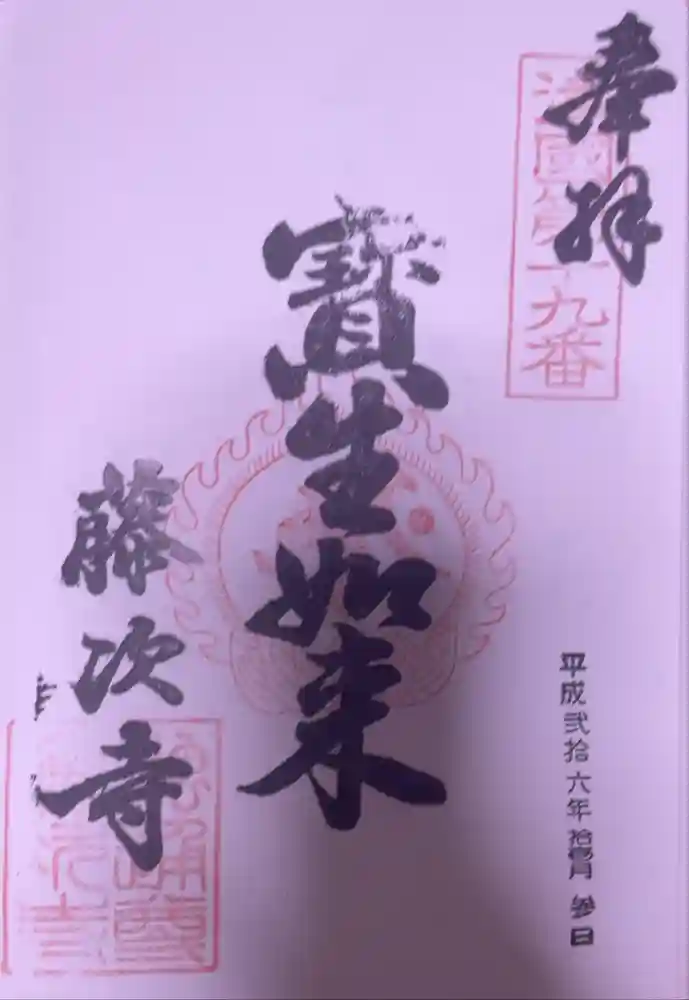 奉拝
法國第十九番
平成弐拾六年拾壹月参日
寳生如来
藤次寺